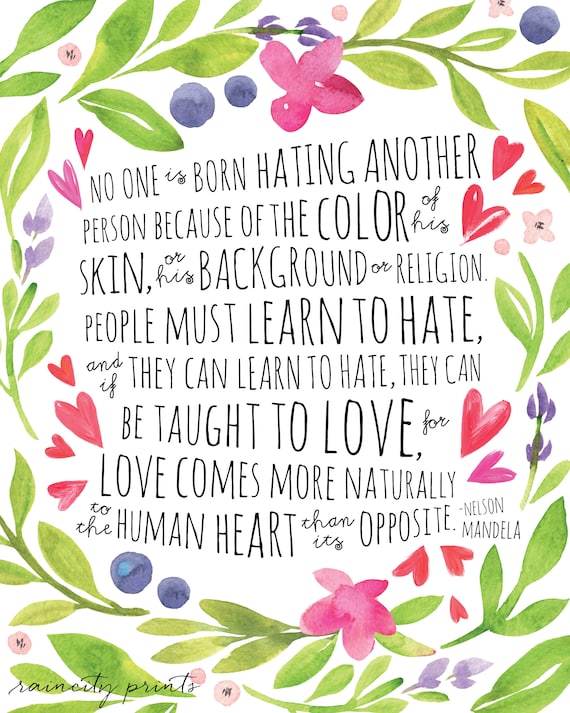 NO ONE is BORN HATING ANOTHER
PERSON BECAUSE OF THE COLOR of his
SKIN, or his BACKGROUND or RELIGION.
PEOPLE MUST LEARN TO HATE,
and if THEY CAN LEARN TO HATE, THEY CAN
BE TAUGHT TO LOVE, for
LOVE COMES MORE NATURALLY
to the HUMAN HEART than its OPPOSITE.
-NELSON
MANDELA
raincity prints